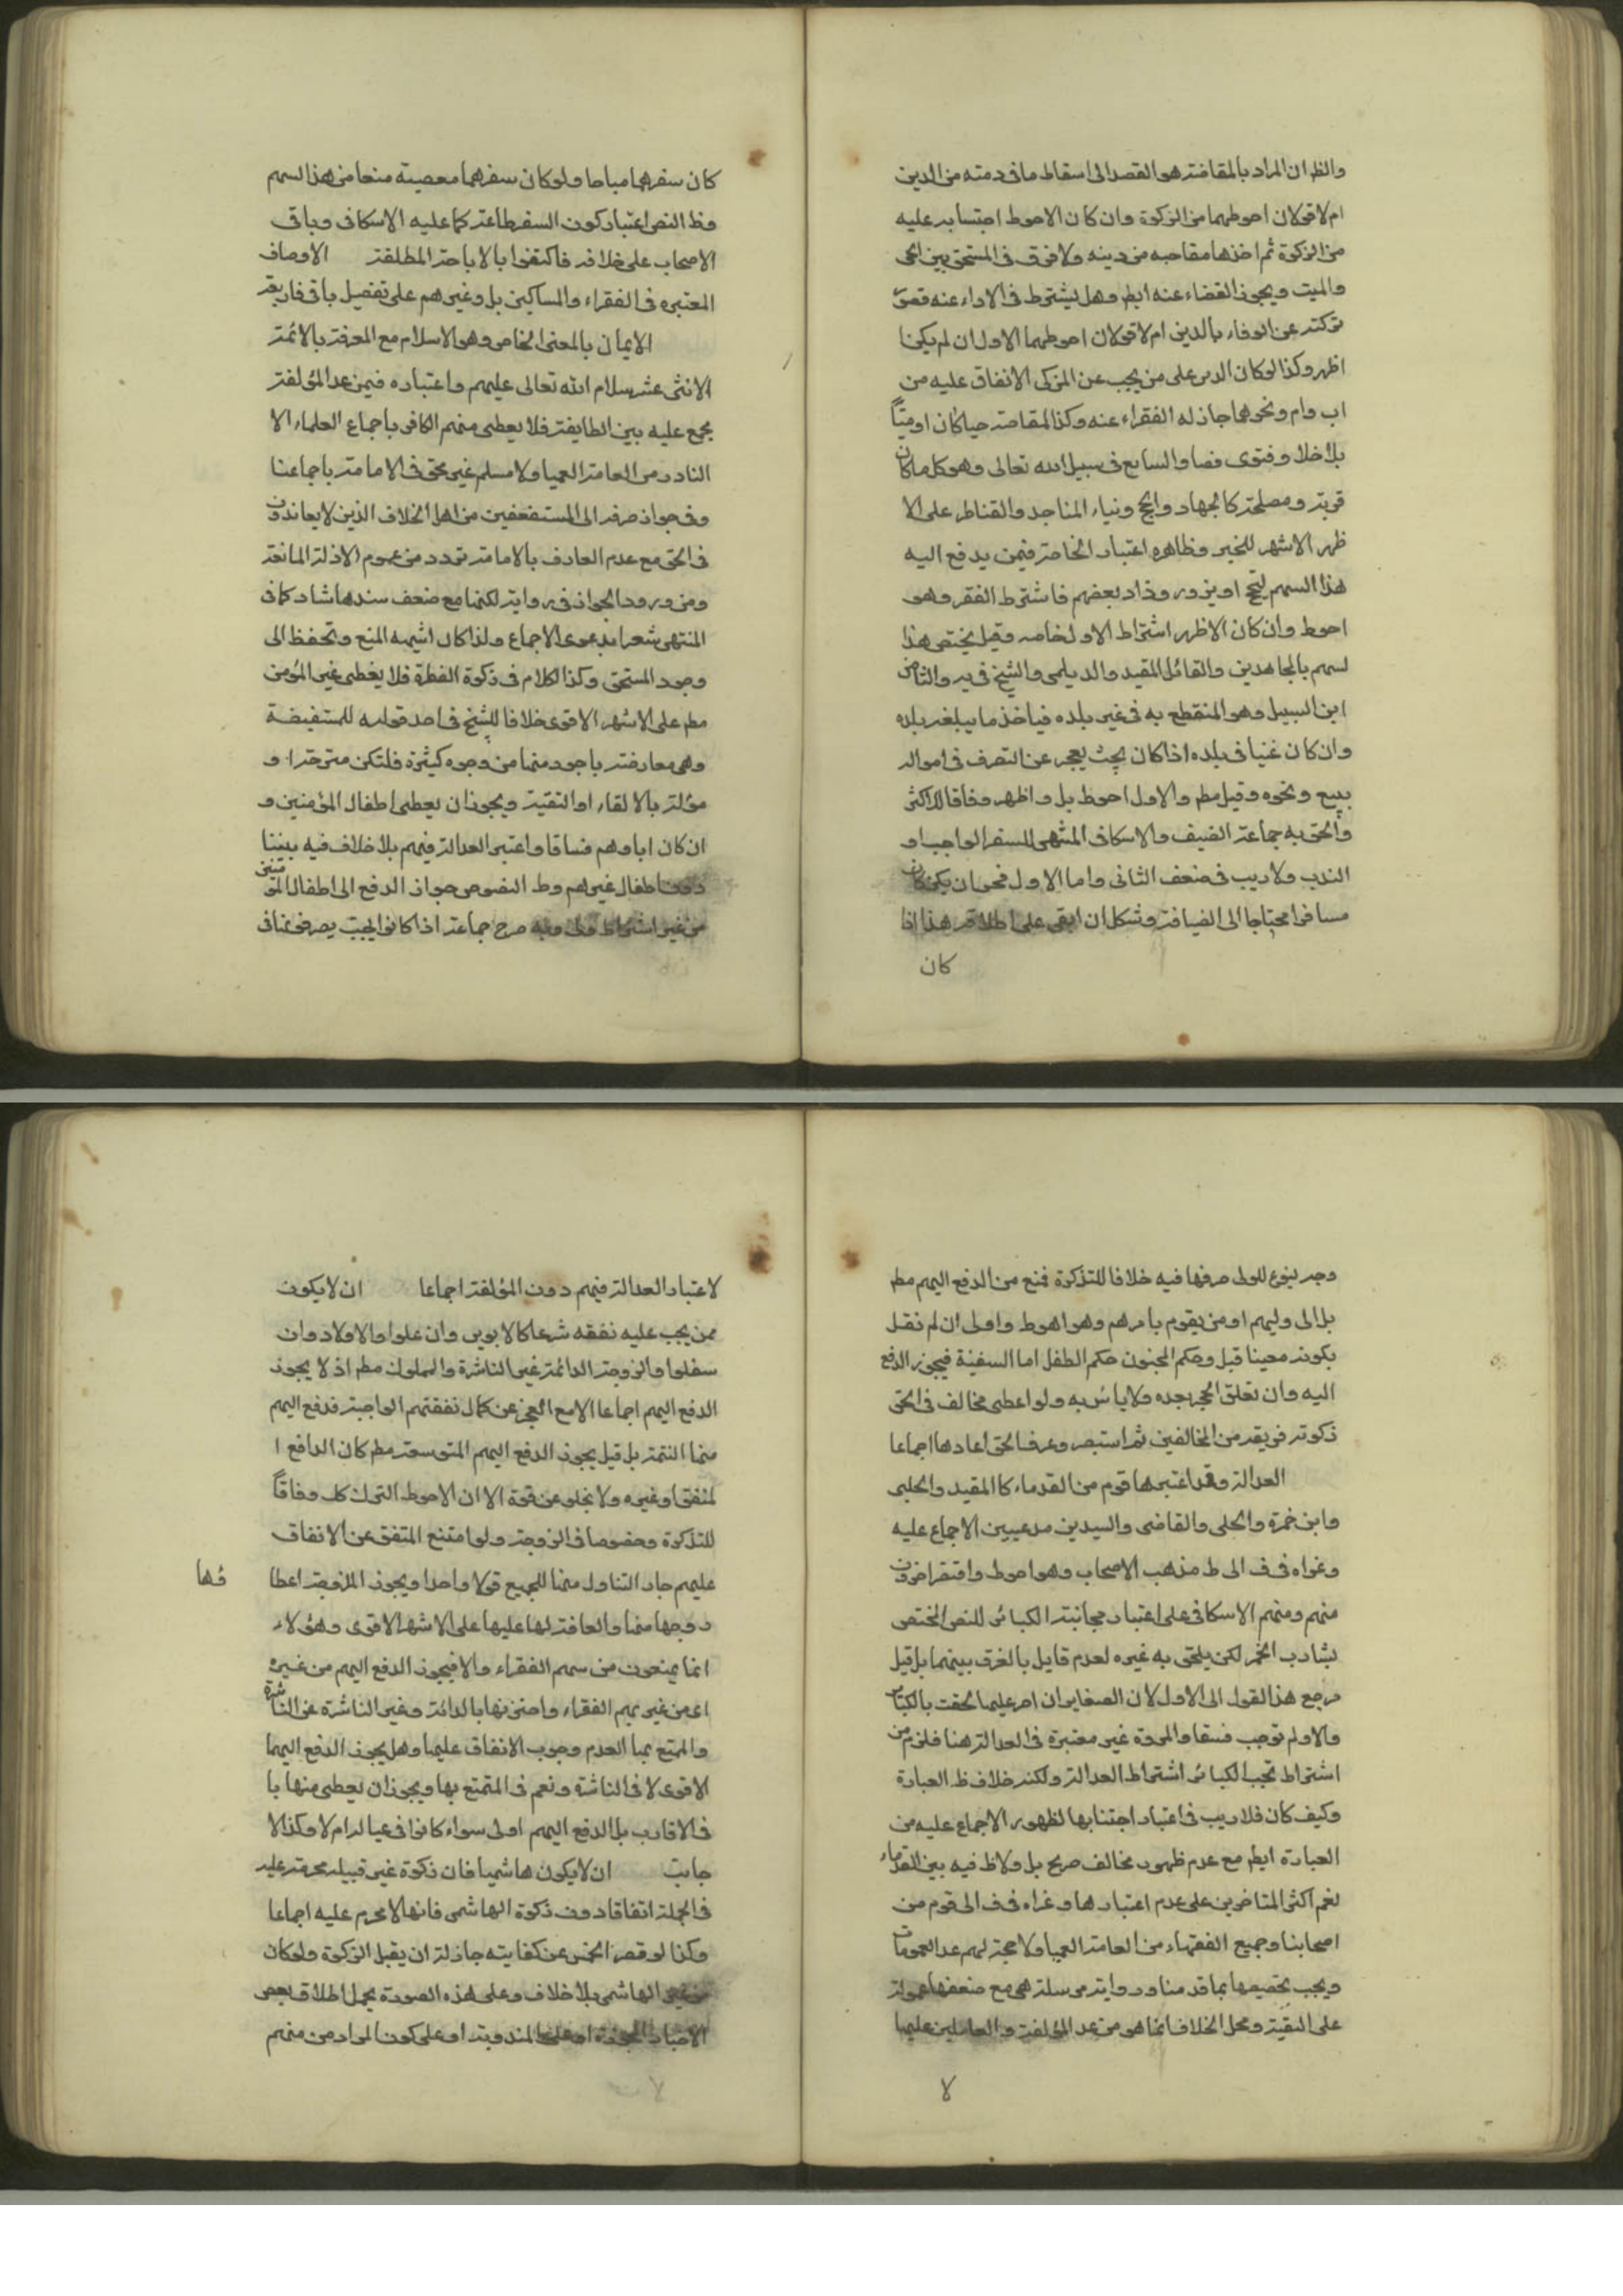 والظ ان المراد بالمقاصة هو القصد الى اسقاط ما فى ذمته من الدين
ام لا قولان احوطهما من الزكوة وان كان الاحوط احتسابه عليه
من الزكوة ثم اخذها مقاصه من دينه ولا فرق فى المستحق بين الحى
والميت ويجوز القضاء عنه ايط وهل يشترط فى الاداء عنه قصور
تركته عن الوفاء بالدين ام لا قولان احوطهما الاول ان لم يكن
اظهر وكذا لو كان الدين على من يجب عن المزكى الانفاق عليه من
اب وام ونحوهما جاز له الفقراء عنه وكذا المقاصة حيا كان او ميتاً
بلا خلاف وفتوى فصا والسابع فى سبيل الله تعالى وهو كل ما كان
قربة ومصلحة كالجهاد والحج وبناء المساجد والقناطر على الا
ظهر الاشهر للخبر وظاهره اعتبار الخاصة فيمن يدفع اليه
هذا السهم ليحج او يزور وزاد بعضهم فاشترط الفقر وهو
احوط وان كان الاظهر اشتراط الاول خاصه وقيل يختص هذا
لسهم بالمجاهدين والقائل المفيد والديلمى والشيخ فى يه والثامن
ابن السبيل وهو المنقطع به فى غير بلده فياخذ ما يبلغه بلده
وان كان غنيا فى بلده اذا كان بحيث يعجز عن التصرف فى امواله
ببيع ونحوه وقيل مطم والاول احوط بل واظهر وفاقا للاكثر
والحق به جماعة الضيف والاسكافى المنتهى للسفر الواجب او
الندب ولا ريب فى ضعف الثانى واما الاول فحوان يكن كان
مسافرا محتاجا الى الضيافة وشكل ان ابقى على اطلاقه هذا اذا
كان
كان سفرهما مباحا ولو كان سفرهما معصيته منعا من هذا السهم
وظ النص اعتبار كون السفر طاعة كما عليه الاسكافى وباقى
الاصحاب على خلافه فاكتفوا بالاباحة المطلقة الاوصاف
المعتبره فى الفقراء والمساكين بل وغيرهم على تفصيل باقى فاربعة
الايمان بالمعنى الخاص وهو الاسلام مع المعرفة بالائمة
الاثنى عشر سلام الله تعالى عليهم واعتباره فيمن عد المؤلفة
مجمع عليه بين الطايفة فلا يعطى منهم الكافر باجماع العلماء الا
النادر من العامة العميا ولا مسلم غير محق فى الامامة باجماعنا
وفى جواز صرفه الى المستضعفين من اهل الخلاف الذين لا يعاندون
فى الحق مع عدم العارف بالامامة تردد من عموم الادلة المانعة
ومن ورود الجواز فى رواية لكنها مع ضعف سندها شاد كما فى
المنتهى شعرا بدعوى الاجماع ولذا كان اشبهه المنع وتحفظ الى
وجود المستحق وكذا الكلام فى زكوة الفطرة فلا يعطى غير المؤمن
مطم على الاشهر الاقوى خلافا للشيخ فى احد قوليه للمستفيضة
وهى معارضة باجود منها من وجوه كثيرة فلتكن مترحة او
مؤلة بالالقاء او التقية ويجوز ان يعطى اطفال المؤمنين و
ان كان اباوهم فساقا واعتبر العدالة فيهم بلا خلاف فيه بيننا
دون اطفال غيرهم وط النصوص جواز الدفع الى اطفال المؤمنين
من غير اشتراط ولى وبه صرح جماعة اذا كانوا بحيث يصرف غنافى
وجه يفوغ للولى صرفها فيه خلافا للتذكرة فمنع من الدفع اليهم مطم
بل الى وليهم او من يقوم بامرهم وهو اهوط واولى ان لم نقل
بكونه معينا قبل وحكم المجنون حكم الطفل اما السفية فيجوز الدفع
اليه وان تعلق الحجر بعده ولا باس به ولو اعطى مخالف فى الحق
زكوته فريقه من المخالفين ثم استبصر وعرف الحق اعادها اجماعا
العدالة وقد اعتبرها قوم من القدماء كالمفيد والحلبى
وابن حمزة والحلى والقاضى والسيدين مدعيين الاجماع عليه
وعزاه فى ف الى ط مذهب الاصحاب وهو احوط واقتصر اخرون
منهم ومنهم الاسكافى على اعتبار مجانبة الكبائر للنص المختص
بشارب الخمر لكن يلحق به غيره لعدم قايل بالفرق بينهما بل قيل
مرجع هذا القول الى الاول لان الصغاير ان اصر عليها الحقت بالكبائر
والاولم توجب فسقا والمروة غير معتبرة فى العدالة هنا فلزم من
اشتراط تجنب الكبائر اشتراط العدالة ولكنه خلاف ظ العبارة
وكيف كان فلا ريب فى اعتبار اجتنابها لظهور الاجماع عليه من
العبارة ايط مع عدم ظهور مخالف صريح بل ولا ظ فيه بين القدماء
نعم اكثر المتاخرين على عدم اعتبارها وغراه فى ف الى قوم من
اصحابنا وجميع الفقهاء من العامة العميا ولا حجة لهم عدا العمومات
ويجب تخصيصها بما قدمنا وروايته مرسلة هى مع ضعفها محمولة
على التقية ومحل الخلاف انما هو من عد المؤلفة والعاملين عليها
لا
لاعتبار العدالة فيهم دون المؤلفة اجماعا ان لا يكون
ممن يجب عليه نفقه شرعا كالابوين وان علوا والاولاد وان
سفلوا والزوجة الدائمة غير الناشزة والمملوك مطم اذ لا يجوز
الدفع اليهم اجماعا الا مع العجز عن كمال نفقتهم الواجبة فدفع اليهم
منها التتمة بل قيل يجوز الدفع اليهم المتوسعة مطم كان الدافع ا
لمنفق او غيره ولا يخلو عن قوة الا ان الاحوط الترك كل وفاقاً
للتذكرة وخصوصا فى الزوجة ولو امتنع المنفق عن الانفاق
عليهم جاز التناول منها للجميع قولا واحدا ويجوز للزوجة اعطا
ؤها
زوجها منها والعافة لها عليها على الاشهر الاقوى وهؤلاء
انما يمنعون من سهم الفقراء والا فيجوز الدفع اليهم من غيره
اى من غير سهم الفقراء واحترزنها بالدائة وغير الناشزة عن الناشزة
والمتمتع بها العدم وجوب الانفاق عليها وهل يجوز الدفع اليهما
الاقوى لا فى الناشزة ونعم فى المتمتع بها ويجوز ان يعطى منها با
فى الاقارب بل الدفع اليهم اولى سواء كانوا فى عياله ام لا وكذا الا
جانب ان لا يكون هاشميا فان زكوة غير قبيله محرمة عليه
فى الجملة اتفاقا دون زكوة الهاشمى فانها لا يحرم عليه اجماعا
وكذا لو قصر الخمس عن كفايته جاز له ان يقبل الزكوة ولو كان
من غير الهاشمى بلا خلاف وعلى هذه الصورة يحمل اطلاق بعض
الاخبار المجوزة او على المندوبة او على كون المراد من منهم